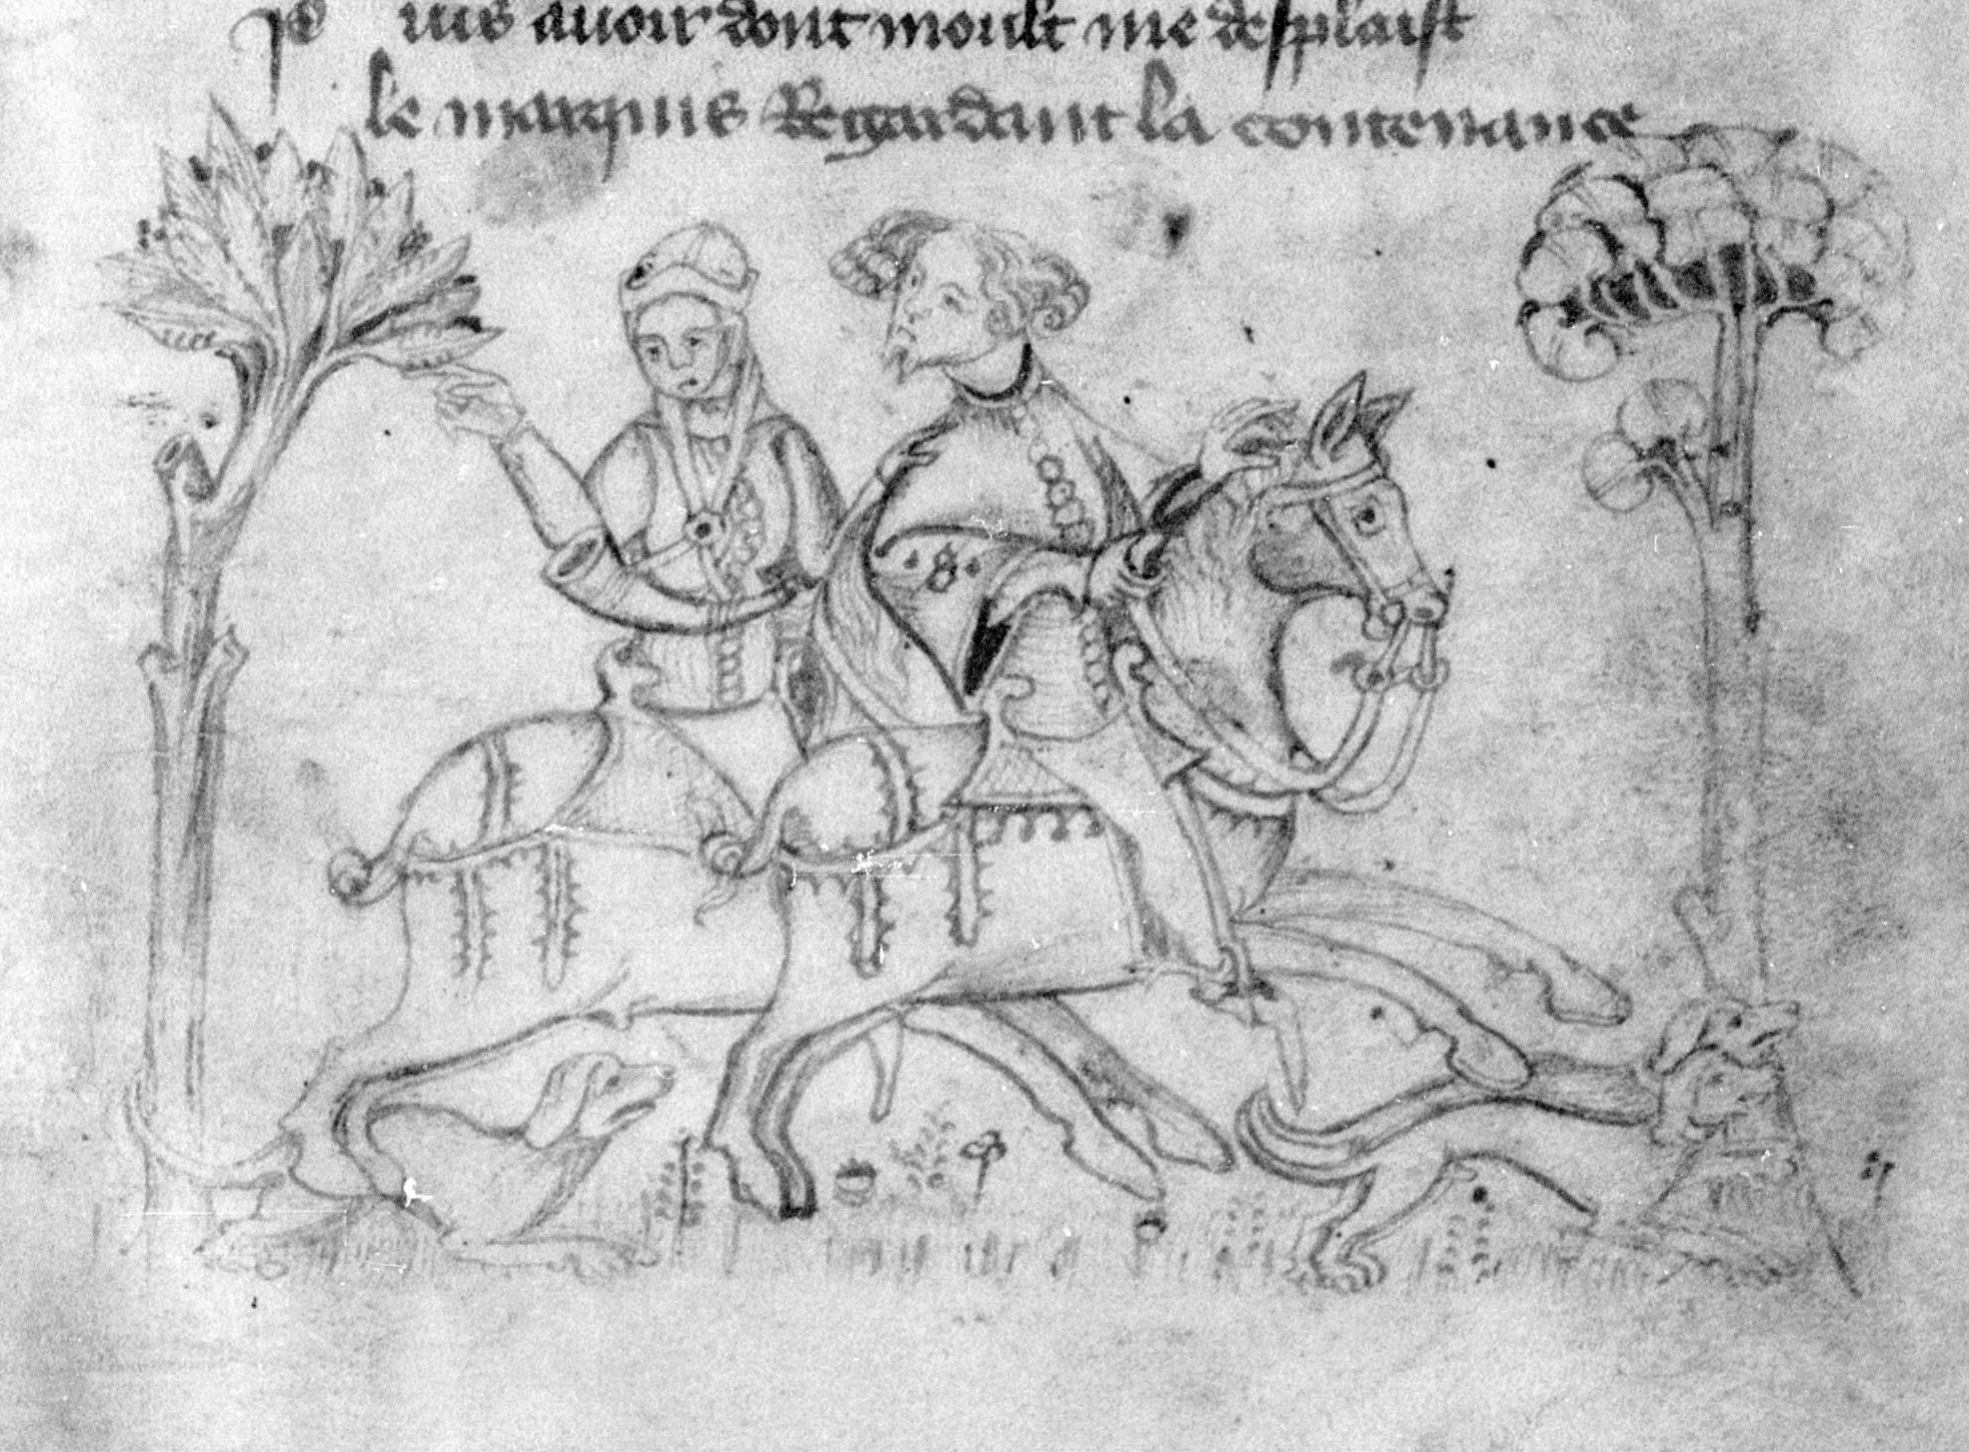 Je vuis auoir dont moult me desplaist
le marquis Regardant la contenance